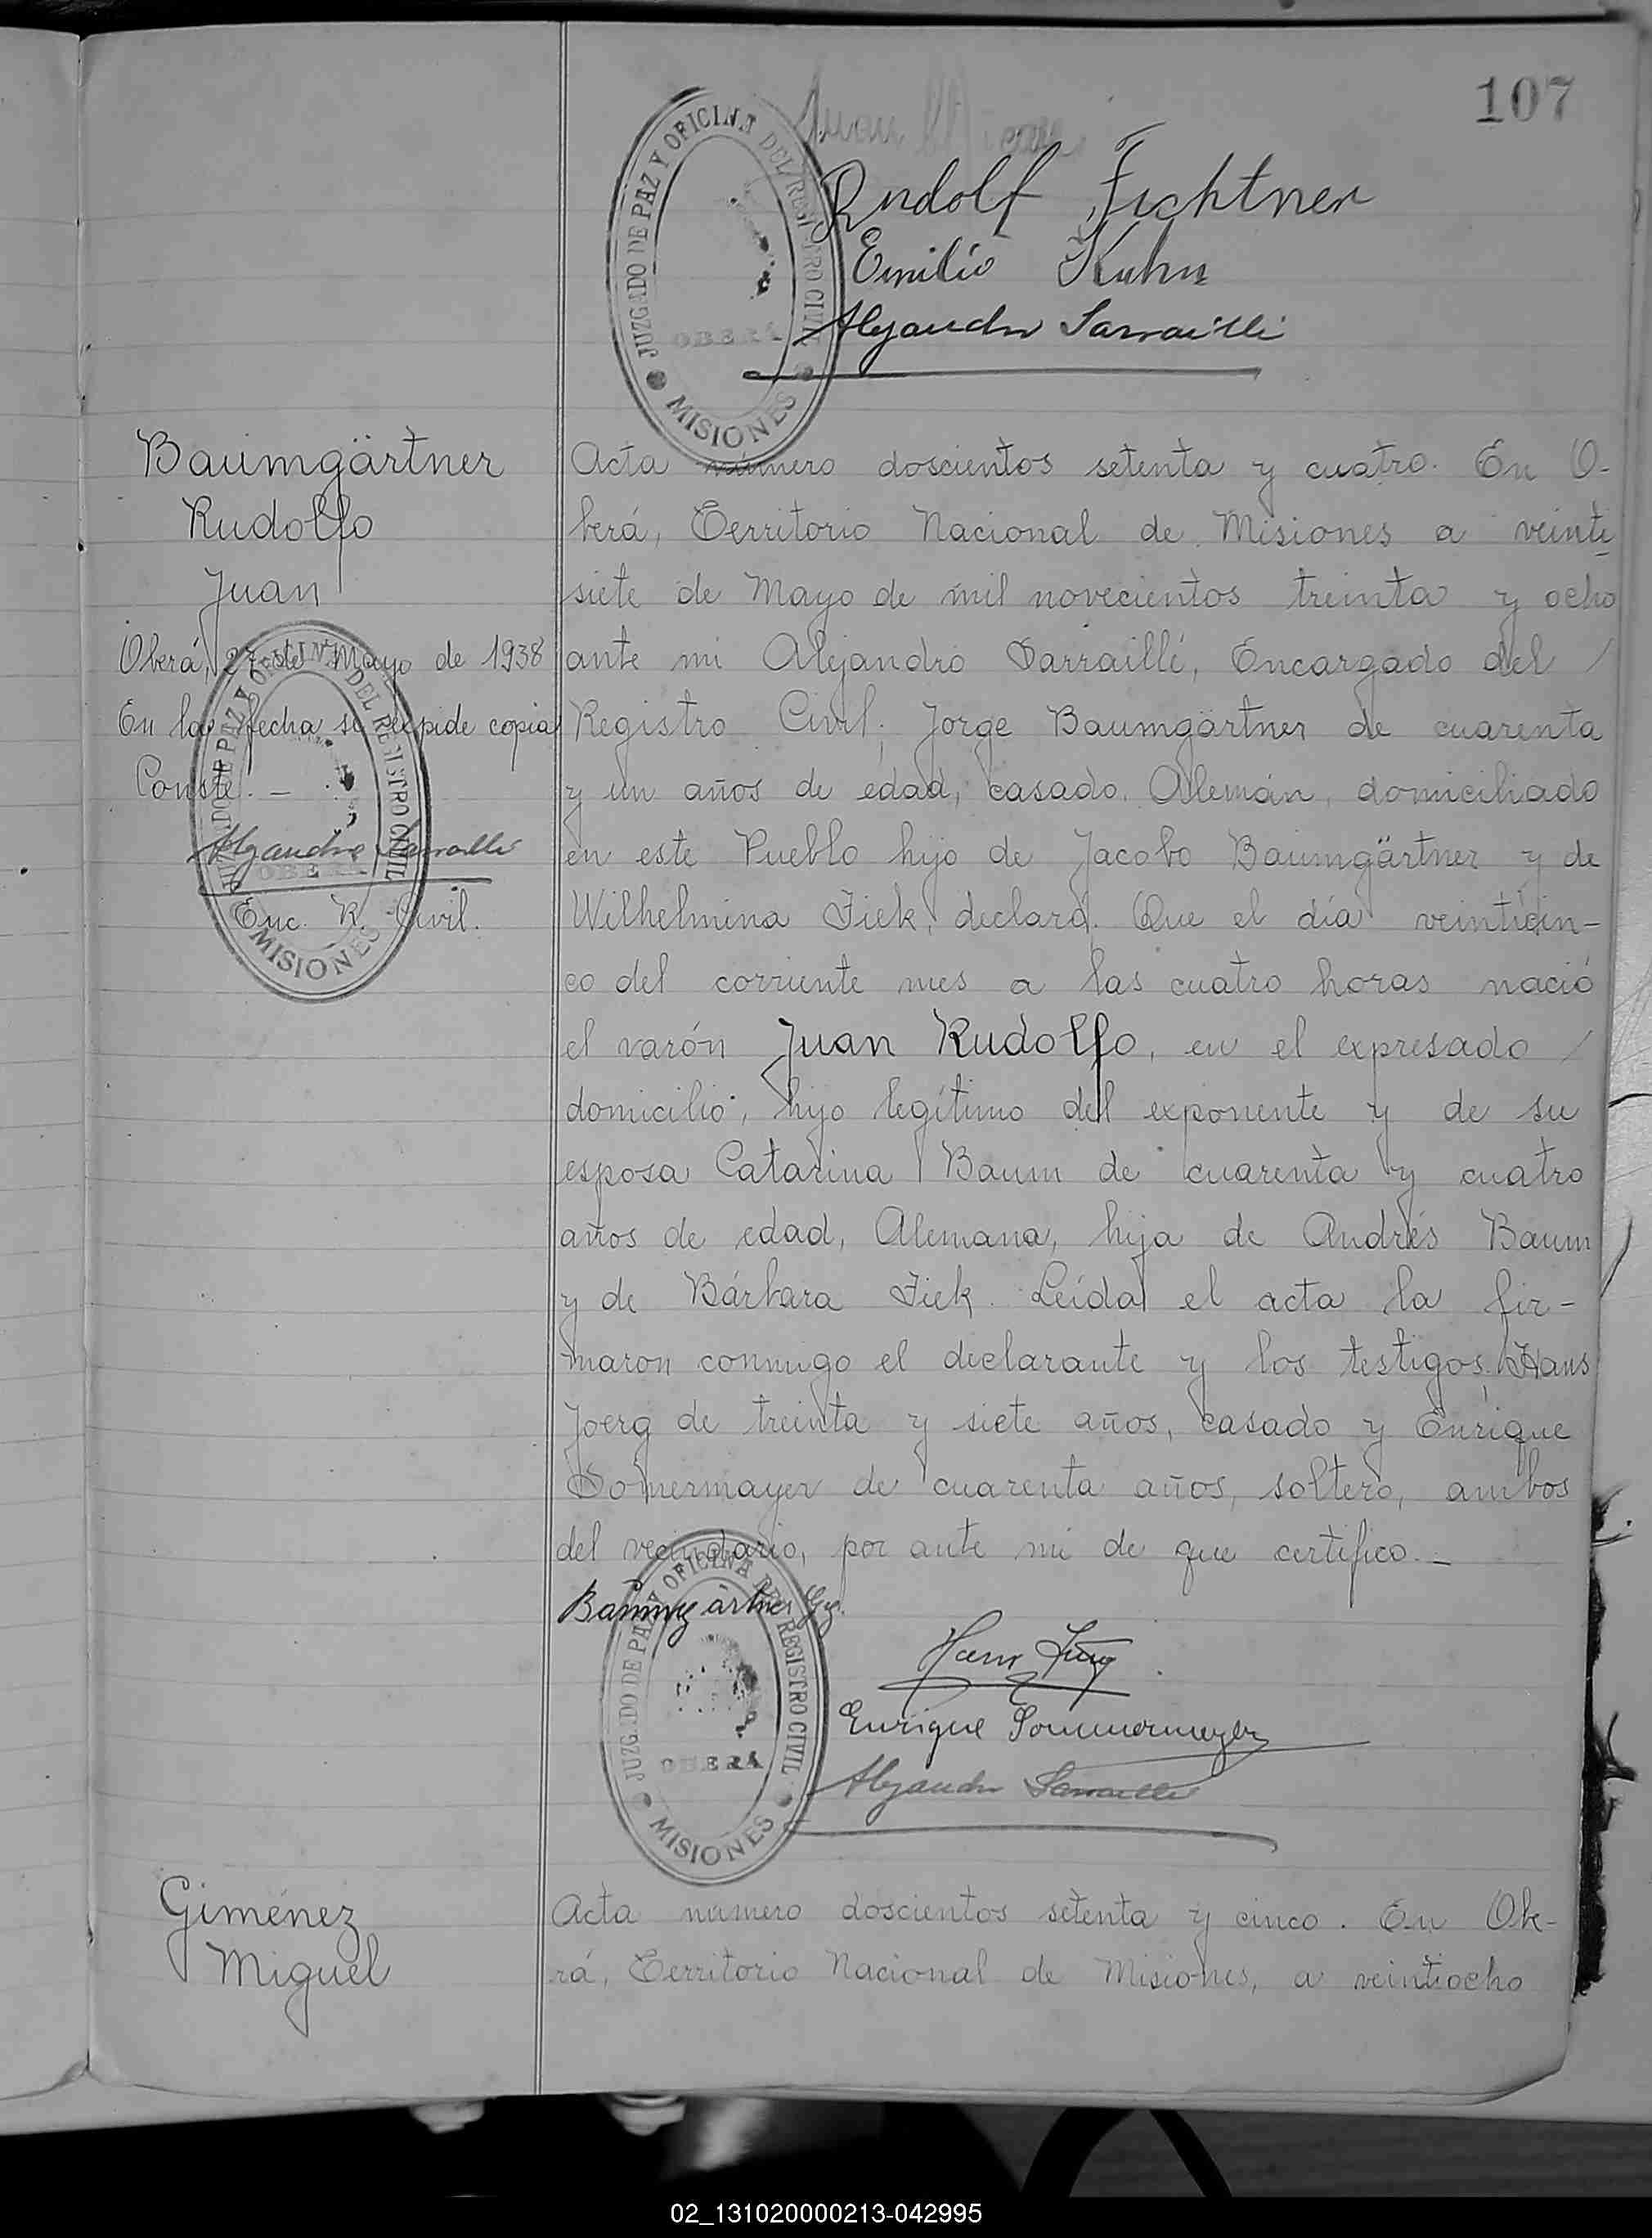 107
Juan
JUZGADO DE PAZ Y OFICINA DEL REGISTRO CIVIL
OBERÁ
MISIONES
Rudolf Fichtner
Emilio Kuhn
Alejandro Sarraillé
Baumgärtner
Rudolfo
Juan
Oberá, 27 de Mayo de 1938
En la fecha se expide copia
Conste. –
Alejandro Sarraillé
Enc. R. Civil.
JUZGADO DE PAZ Y OFICINA DEL REGISTRO CIVIL
OBERÁ
MISIONES
Acta número doscientos setenta y cuatro. En O-
berá, Territorio Nacional de Misiones a veinti
siete de Mayo de mil novecientos treinta y ocho
ante mi Alejandro Sarraillé, Encargado del /
Registro Civil; Jorge Baumgärtner de cuarenta
y un años de edad, casado, Alemán, domiciliado
en este Pueblo hijo de Jacobo Baumgärtner y de
Wilhelmina Fiek, declaró. Que el día veinticin-
co del corriente mes a las cuatro horas nació
el varón Juan Rudolfo, en el expresado /
domicilio, hijo legítimo del exponente y de su
esposa Catarina Baum de cuarenta y cuatro
años de edad, Alemana, hija de Andrés Baum
y de Bárbara Fiek. Leída el acta la fir-
maron conmigo el declarante y los testigos Hans
Joerg de treinta y siete años, casado y Enrique
Somermayer de cuarenta años, soltero, ambos
del vecindario, por ante mi de que certifico. –
Baumgärtner
Hans
Enrique Sommermeyer
Alejandro Sarraillé
JUZGADO DE PAZ Y OFICINA DEL REGISTRO CIVIL
OBERÁ
MISIONES
Giménez
Miguel
Acta número doscientos setenta y cinco. En Obe-
rá, Territorio Nacional de Misiones, a veintiocho
02_131020000213-042995